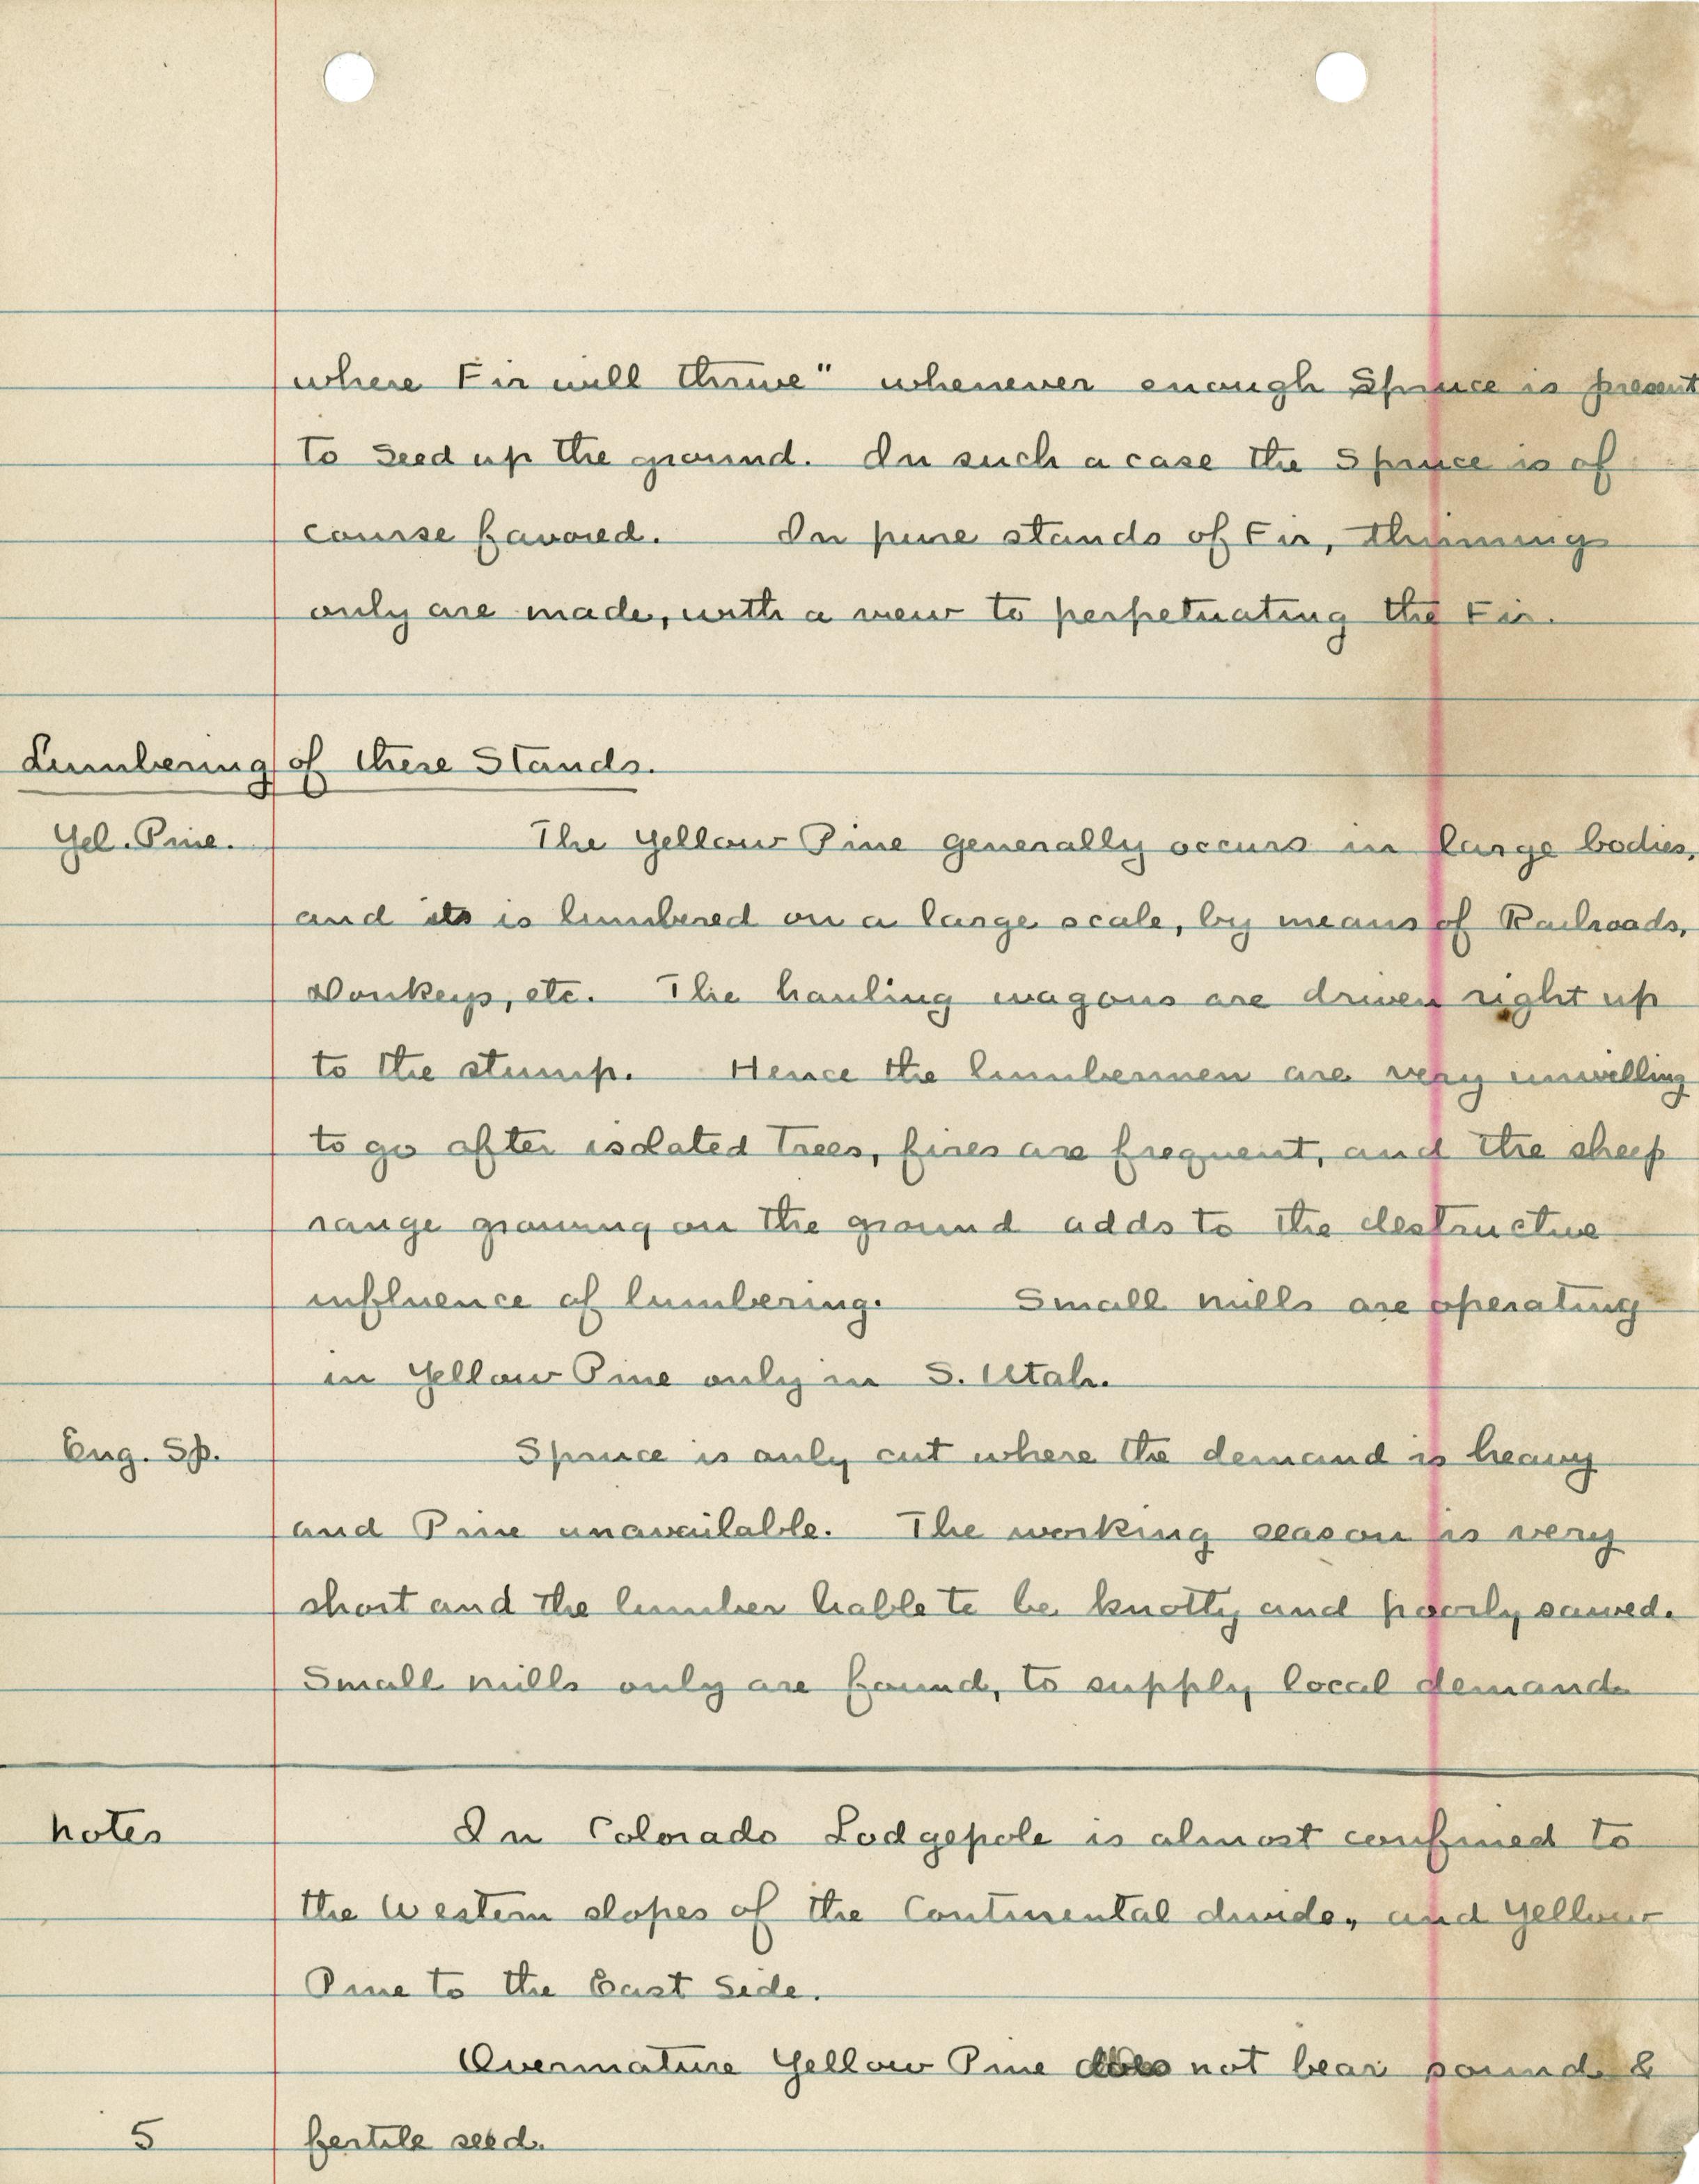 where Fir will thrive" whenever enough Spruce is present
to seed up the ground. In such a case the Spruce is of
course favored. In pure stands of Fir, thinnings
only are made, with a view to perpetuating the Fir.
Lumbering of these Stands.
Yel. Pine. The Yellow Pine generally occurs in large bodies,
and its is lumbered on a large scale, by means of Railroads,
Donkeys, etc. The hauling wagons are driven right up
to the stump. Hence the lumbermen are very unwilling
to go after isolated trees, fires are frequent, and the sheep
range growing on the ground adds to the destructive
influence of lumbering. Small mills are operating
in Yellow Pine only in S. Utah.
Eng. Sp. Spruce is only cut where the demand is heavy
and Pine unavailable. The working season is very
short and the lumber liable to be knotty and poorly sawed.
Small mills only are found, to supply local demands
Notes In Colorado Lodgepole is almost confined to
the Western slopes of the Continental divide, and Yellow
Pine to the East Side.
Overmature Yellow Pine does not bear sound &
5 fertile seed.